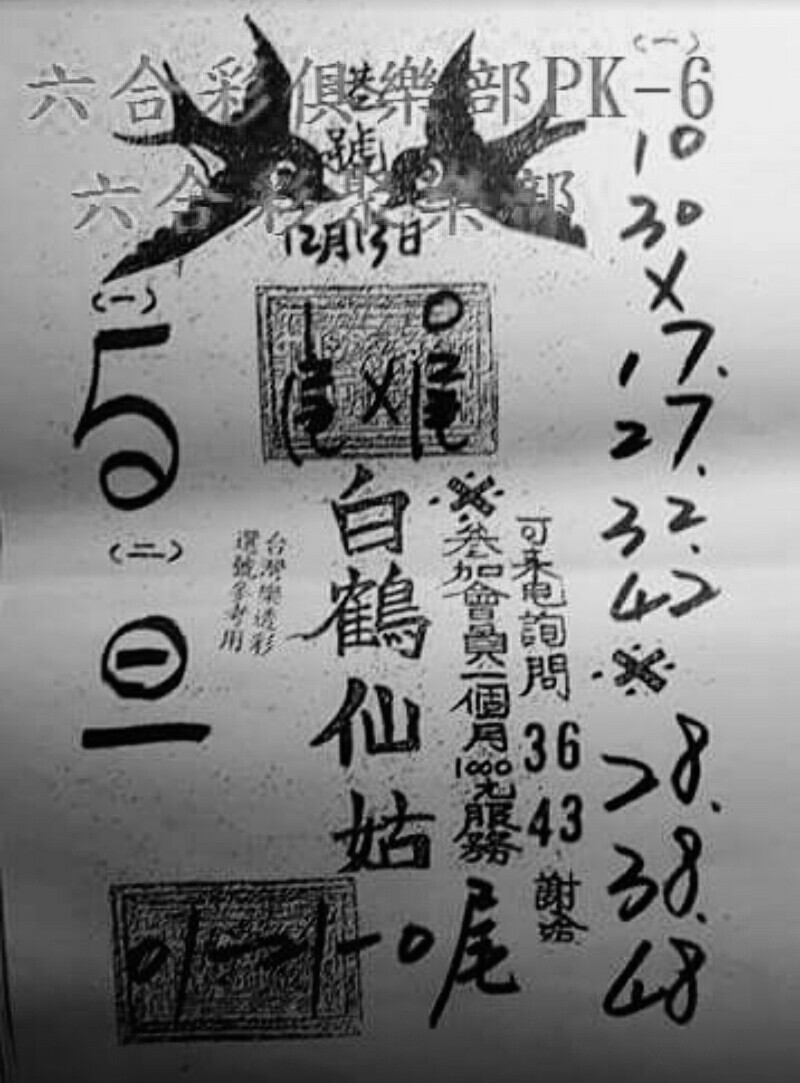 六合彩俱樂部PK-6
港號
六合彩俱樂部
12月13日
(一)
5
(二)
一
1 0
1尾 X 2尾
白鶴仙姑
※
參加會員一個月1000元服務
可來电詢問
36
43
謝哈
台灣樂透彩
選號參考用
01-21-0尾
(一)
10
30
X
17.
27.
32.
42
※
28.
38.
48